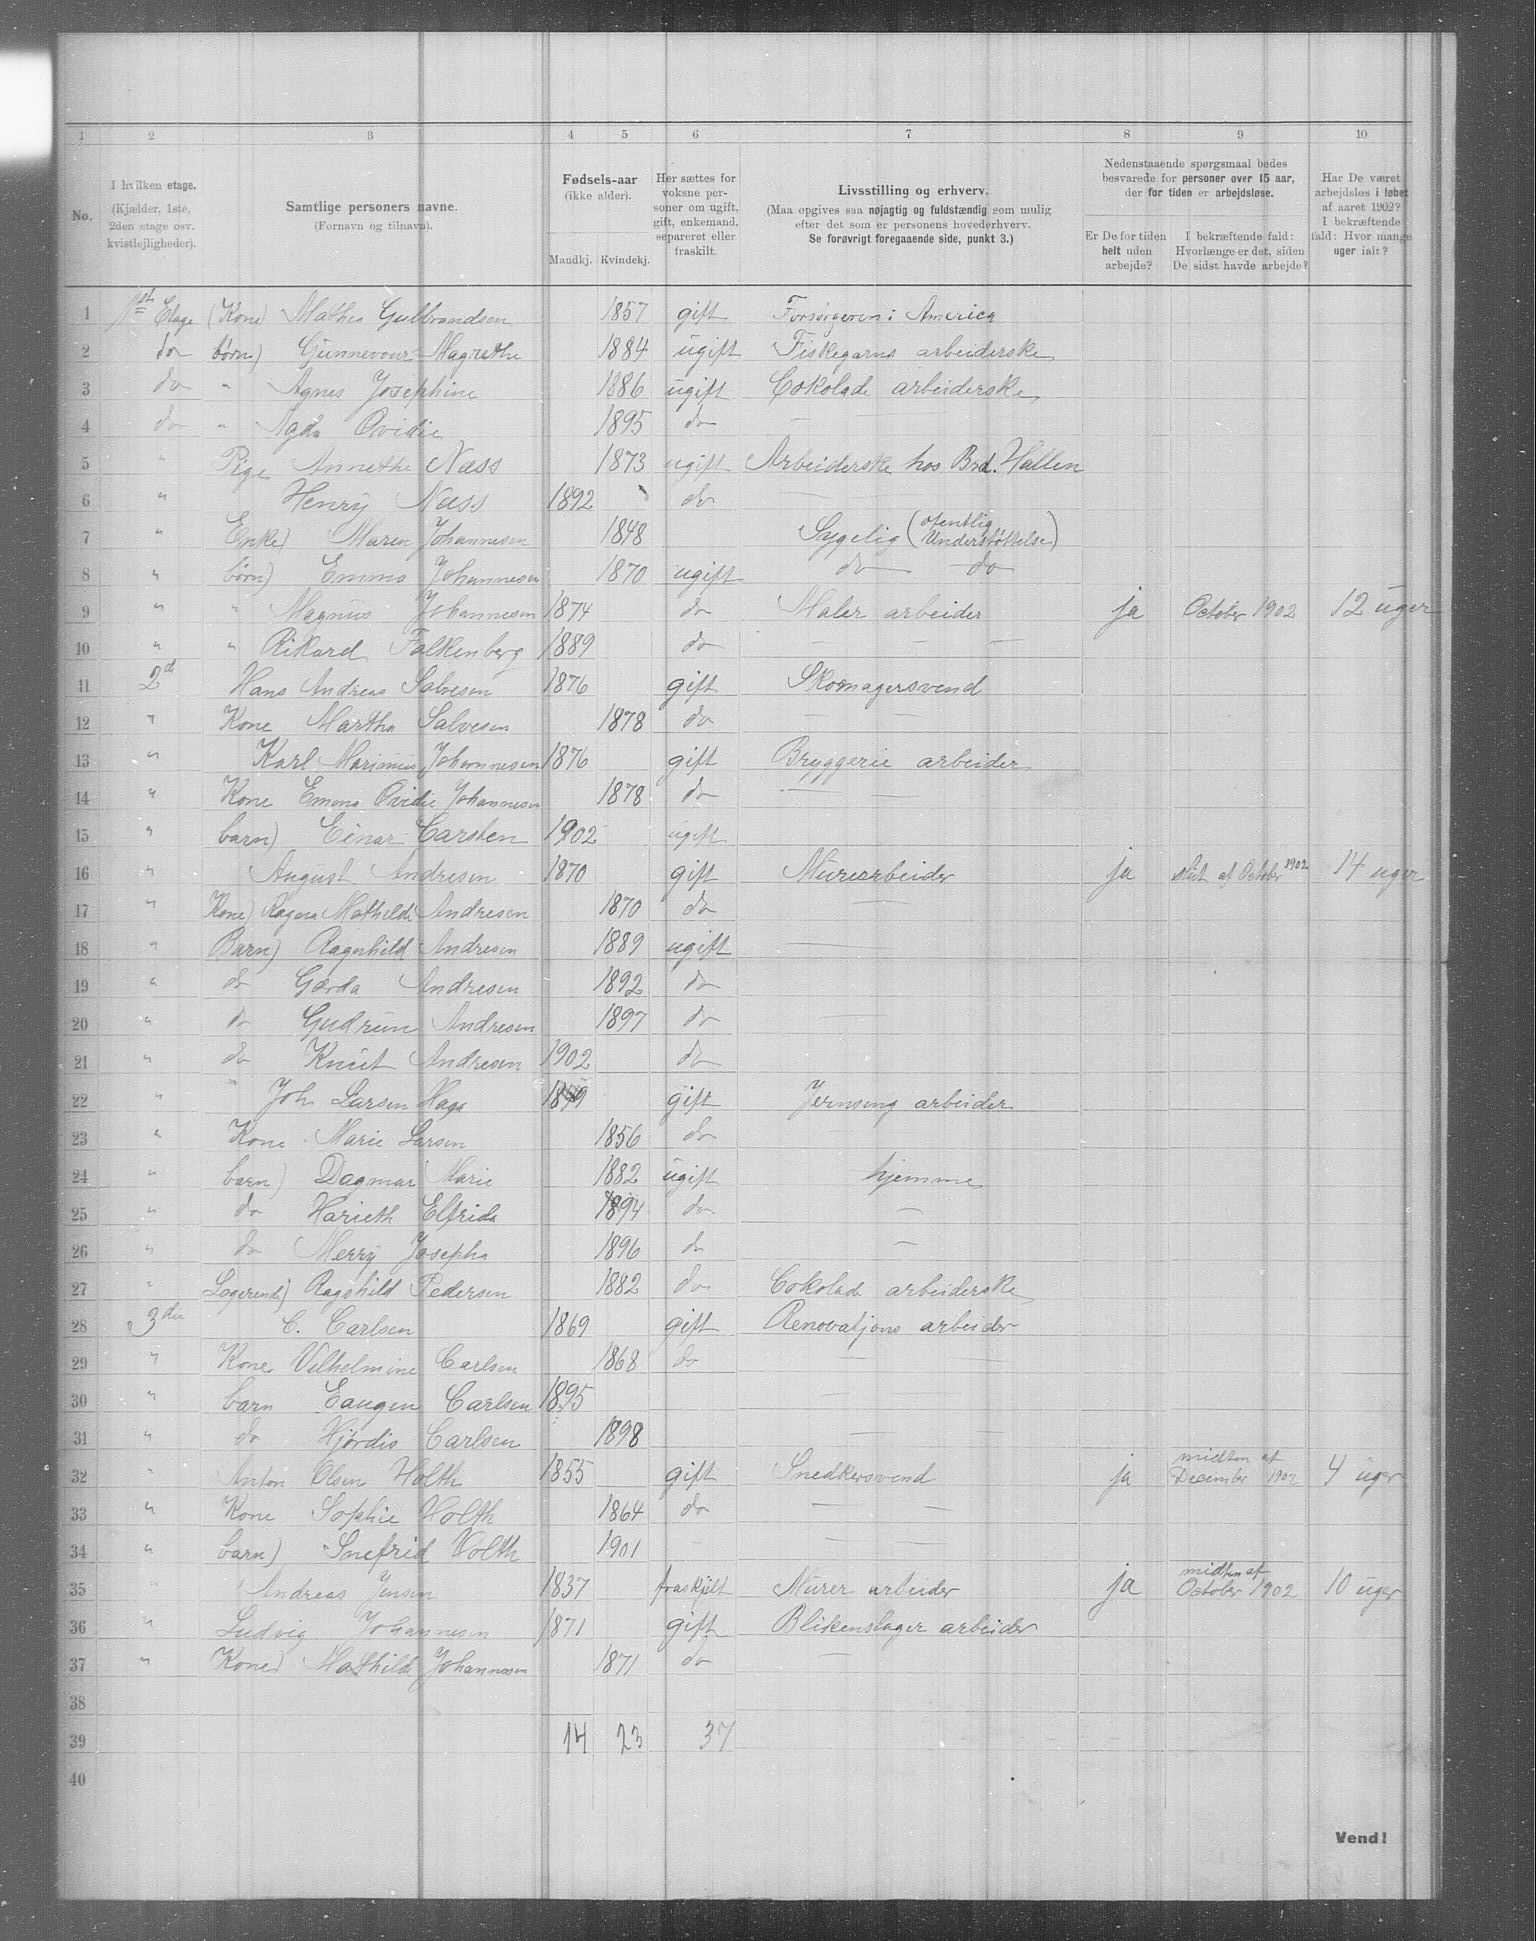 1 2 3 4 5 6 7 8 9 10
No.
I hvilken etage. (Kjælder, 1ste, 2den etage osv. kvistlejligheder).
Samtlige personers navne. (Fornavn og tilnavn).
Fødsels-aar (ikke alder). Mandkj. Kvindekj.
Her sættes for voksne personer om ugift, gift, enkemand, separeret eller fraskilt.
Livsstilling og erhverv. (Maa opgives saa nøjagtig og fuldstændig som mulig efter det som er personens hovederhverv. Se forøvrigt foregaaende side, punkt 3.)
Nedenstaaende spørgsmaal bedes besvarede for personer over 15 aar, der for tiden er arbejdsløse.
Er De for tiden helt uden arbejde?
I bekræftende fald: Hvorlænge er det, siden De sidst havde arbejde?
Har De været arbejdsløs i løbet af aaret 1902? I bekræftende fald: Hvor mange uger ialt?
1 1st Etage (Kone) Mathea Gulbrandsen 1857 gift Forsørgeren i America
2 do børn) Gunnevour Magrethe 1884 ugift Fiskegarns arbeiderske
3 do " Agnes Josephine 1886 ugift Cokolade arbeiderske
4 do " Agda Ovidie 1895 do —
5 " Pige Annethe Næss 1873 ugift Arbeiderske hos Brd. Hallen
6 " Henry Næss 1892 do —
7 " Enke) Maren Johannesen 1848 Sygelig (ofentlig Understøttelse)
8 " børn) Emma Johannesen 1870 ugift do do
9 " " Magnus Johannesen 1874 do Maler arbeider ja October 1902 12 uger
10 " " Rikard Falkenberg 1889 do — — —
11 2d Hans Andreas Salvesen 1876 gift Skomagersvend
12 " Kone Martha Salvesen 1878 do — —
13 " Karl Marinius Johannesen 1876 gift Bryggerie arbeider
14 " Kone Emma Ovidie Johannesen 1878 do — —
15 " barn) Einar Carsten 1902 ugift
16 " August Andresen 1870 gift Murerarbeider ja slut af October 1902 14 uger
17 " Kone) Ragna Mathilde Andresen 1870 do —
18 " Barn) Ragnhild Andresen 1889 ugift —
19 " do Gerda Andresen 1892 do
20 " do Gudrun Andresen 1897 do —
21 " do Knut Andresen 1902 do
22 " Joh. Larsen Haga gift Jernseng arbeider
23 " Kone Marie Larsen 1856 do
24 " barn) Dagmar Marie 1882 ugift hjemme
25 " do Harieth Elfrida 1894 do —
26 " do Merry Josepha 1896 do —
27 " Logerende) Ragnhild Pedersen 1882 do Cokolade arbeiderske
28 3die C. Carlsen 1869 gift Renovatjons arbeider
29 " Kone Vilhelmine Carlsen 1868 do — —
30 " barn Eaugen Carlsen 1895 —
31 " do Hjørdis Carlsen 1898 —
32 " Anton Olsen Holth 1855 gift Snedkersvend ja midten af December 1902 4 uger
33 " Kone Sophie Holth 1864 do — —
34 " barn) Snefrid Holth 1901 — —
35 " Andreas Jensen 1837 fraskjilt Murer arbeider ja midten af October 1902 10 uger
36 " Ludvig Johannesen 1871 gift Blikenslager arbeider
37 " Kone) Mathilde Johannesen 1871 do —
38
39 14 23 37
40
Vend!